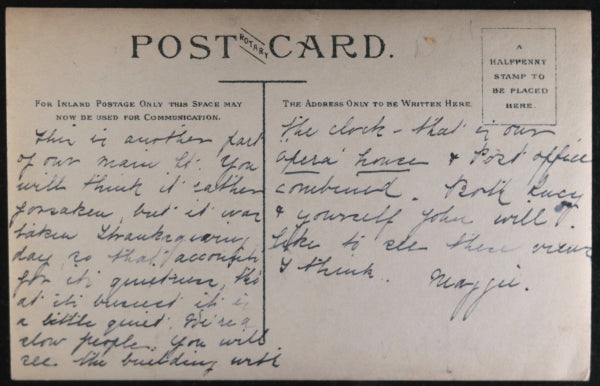 POST CARD.
ROTARY
A
HALFPENNY
STAMP TO
BE PLACED
HERE.
FOR INLAND POSTAGE ONLY THIS SPACE MAY
NOW BE USED FOR COMMUNICATION.
THE ADDRESS ONLY TO BE WRITTEN HERE.
This is another part
of our main St. You
will think it rather
forsaken, but it was
taken Thanksgiving
day, so that accounts
for its quietness, tho'
at its busiest it is
a little quiet. We're a
slow people. You will
see the building with
the clock - that is our
opera house & Post office
combined. Both Lucy
& yourself John will
like to see these views
I think. Maggie.